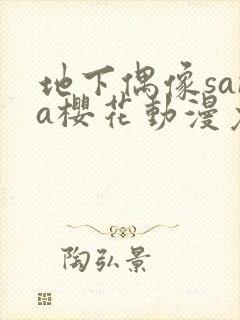 地下偶像sa
a樱花動漫
陶弘景